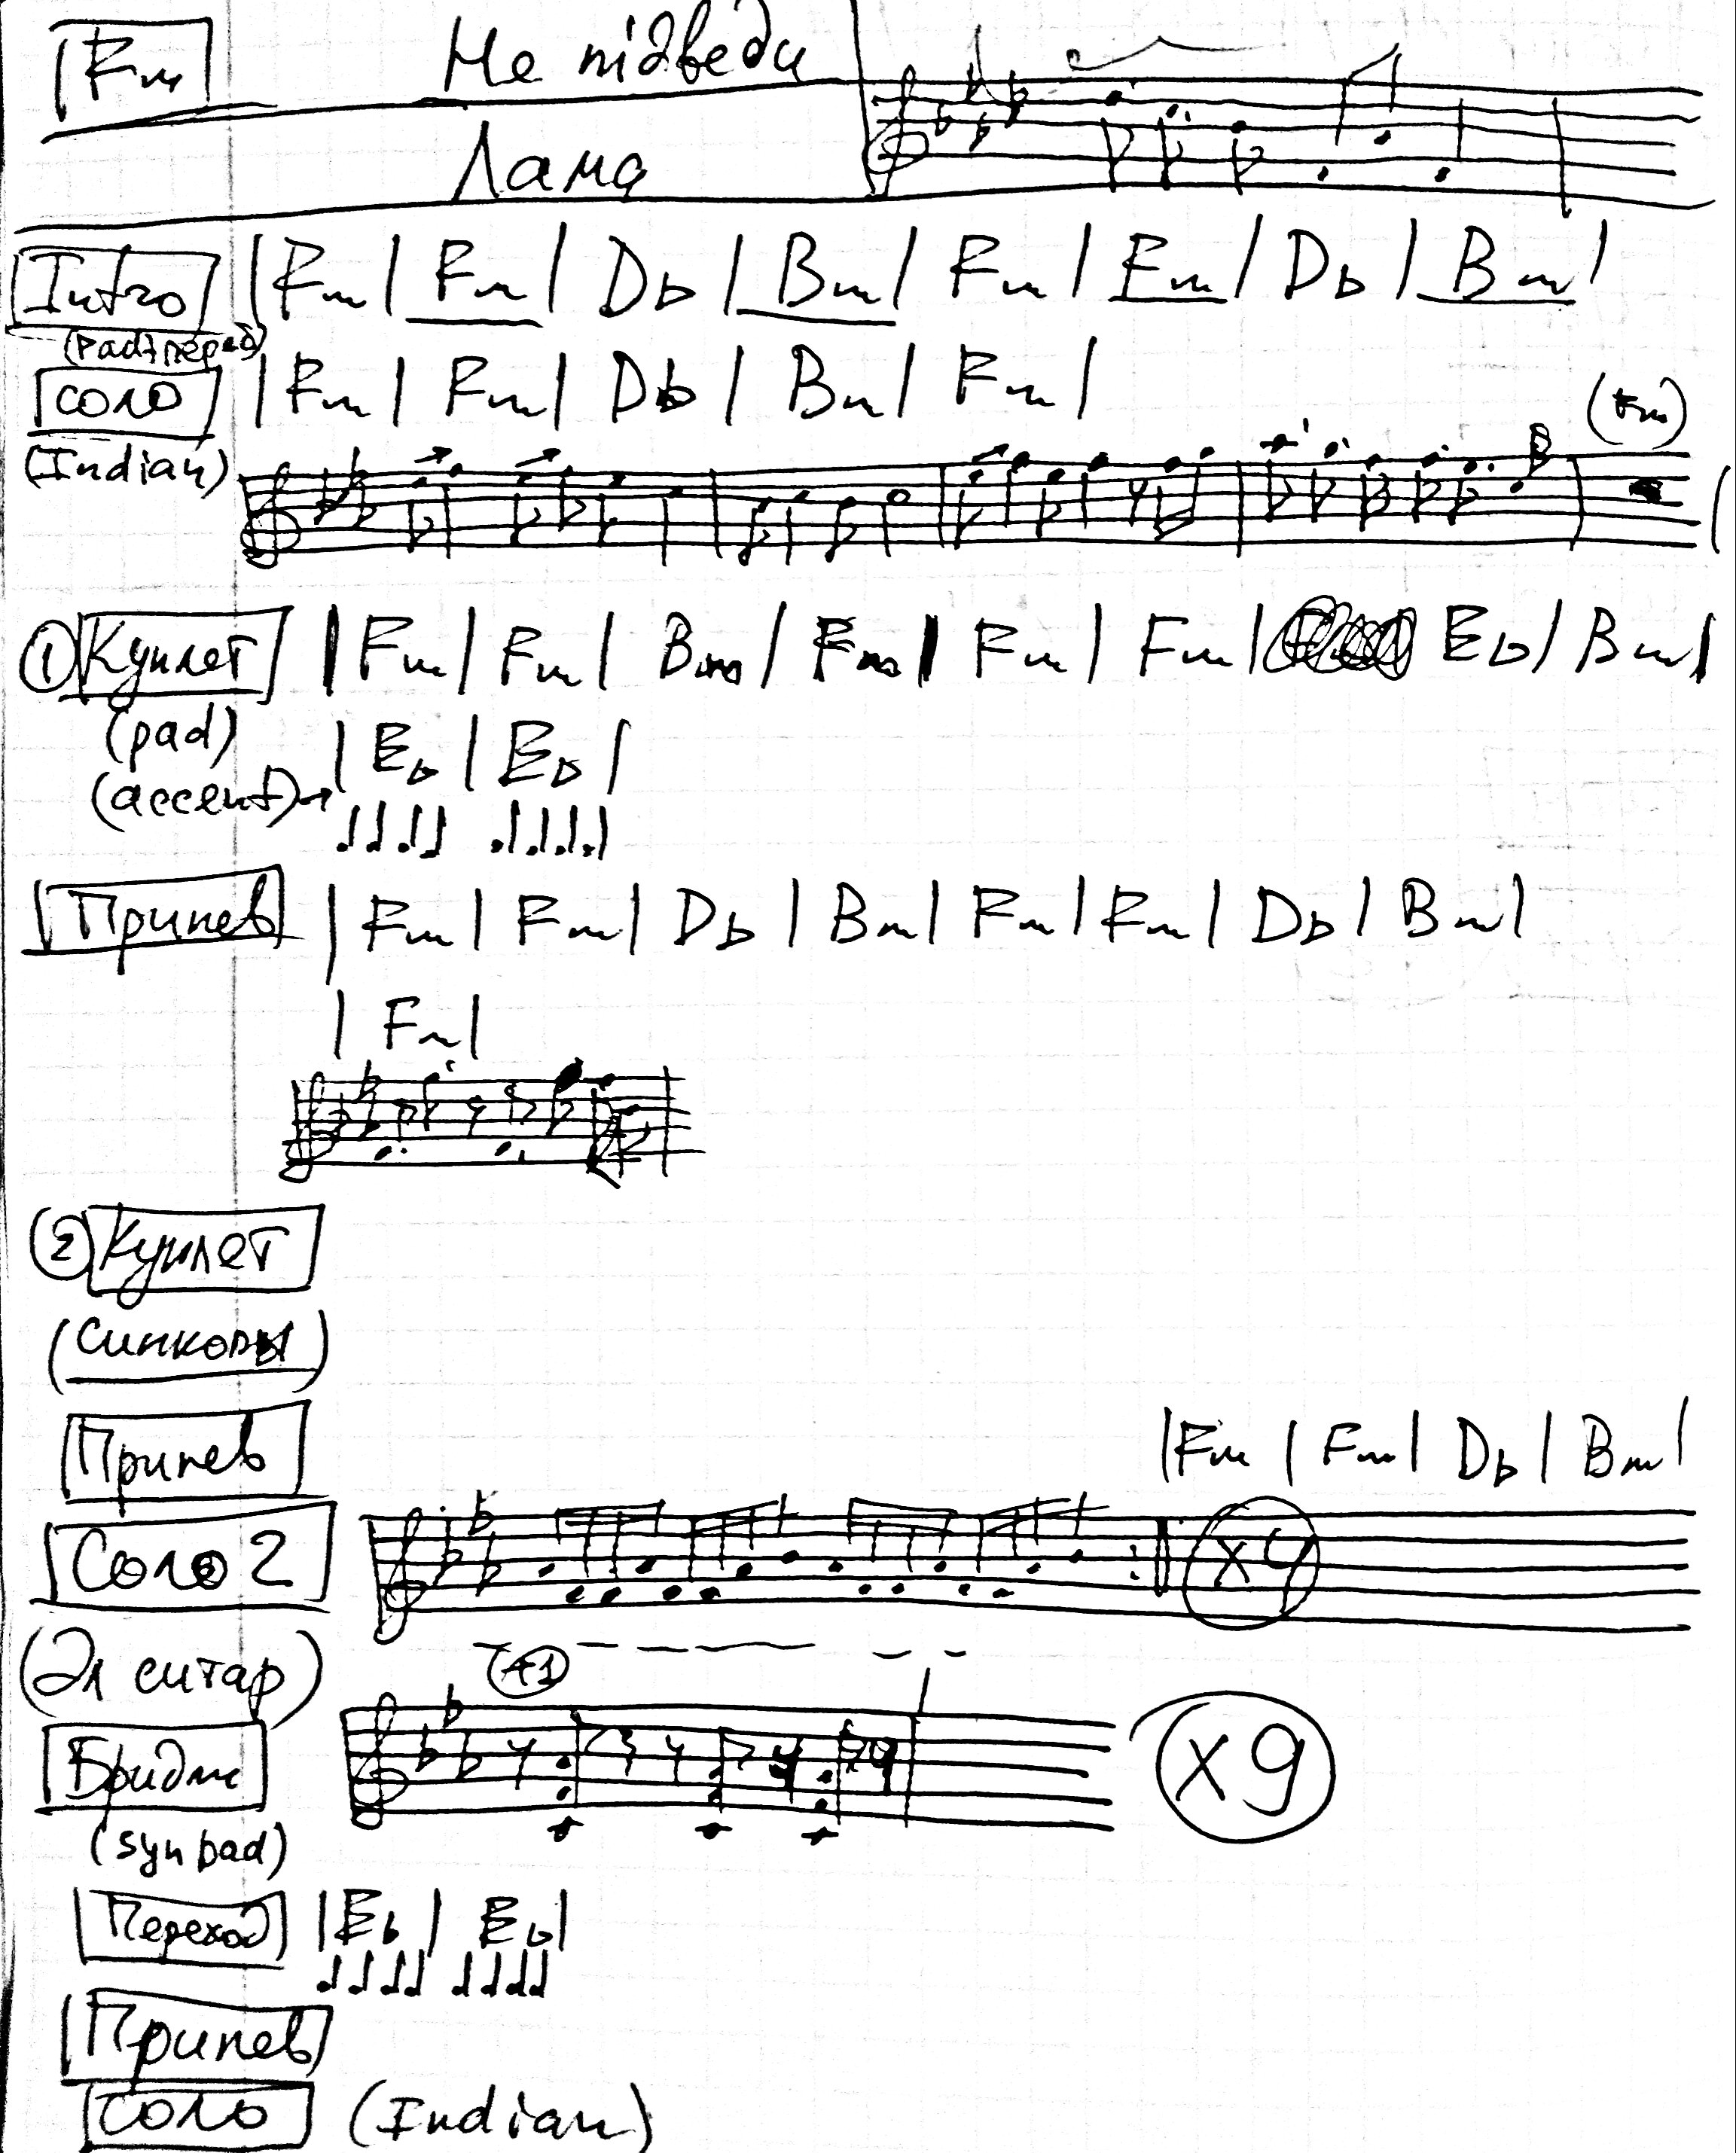 Fm Не підведи
Лама
Intro | Fm | Fm | Db | Bm | Fm | Fm | Db | Bm |
соло | Fm | Fm | Db | Bm | Fm |
(Indian) (Fm)
① Куплет | Fm | Fm | Bm | Fm | Fm | Fm | Eb | Bm |
(pad) | Eb | Eb |
(accent)→
Припев | Fm | Fm | Db | Bm | Fm | Fm | Db | Bm |
| Fm |
② Куплет
(синкопы)
Припев | Fm | Fm | Db | Bm |
Соло 2 x4
(Эл ситар)
Бридж x9
(syn pad)
Переход | Eb | Eb |
Припев
соло (Indian)